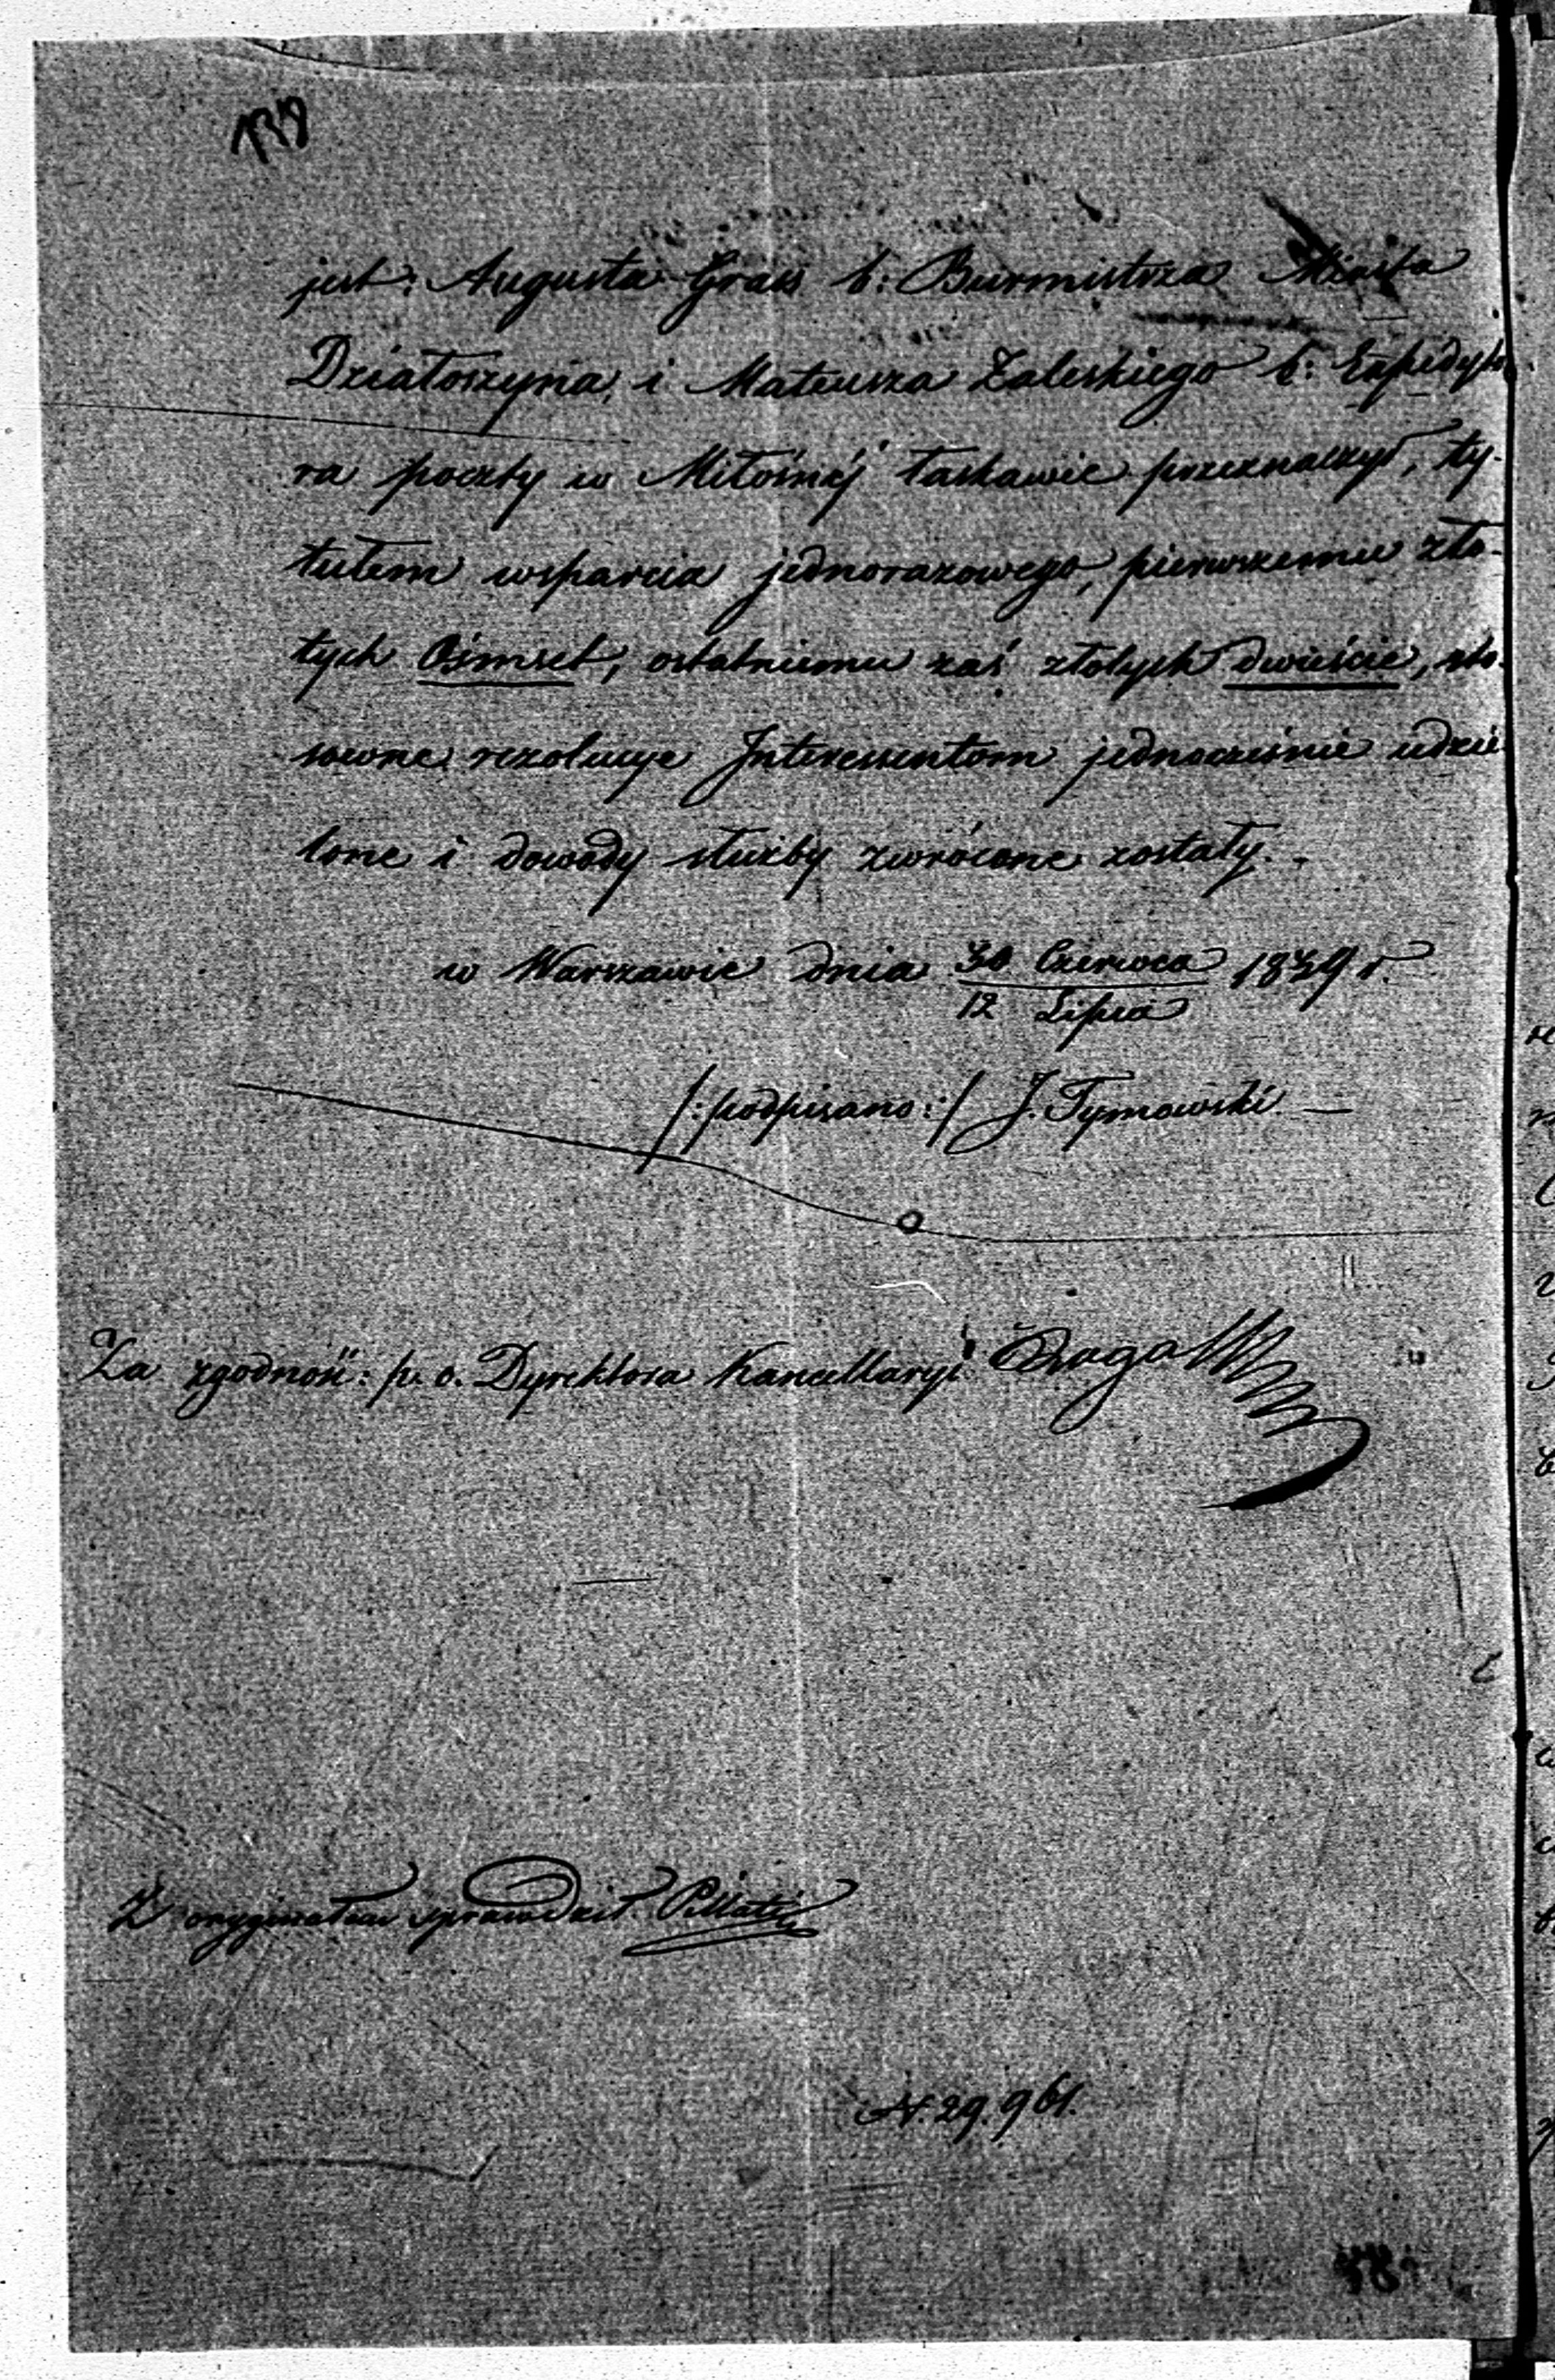 138
jest: Augusta Grass b: Burmistrza Miasta
Działoszyna, i Mateusza Zaleskiego b: Expedyto
ra poczty w Miłosnéj łaskawie przeznaczył, ty-
tułem wsparcia jednorazowego, pierwszemu zło-
tych Ośmset, ostatniemu zaś złotych dwieście, sto-
sowne rezolucye Interessentom jednocześnie udzie
lone i dowody służby zwrócone zostały. -
w Warszawie dnia 30 Czerwca 1839 r.
12 Lipca
/: podpisano :/ J. Tymowski. —
Za zgodność: p. o. Dyrektora Kancellaryi
Z oryginałem sprawdził Pillati
N. 29.961.